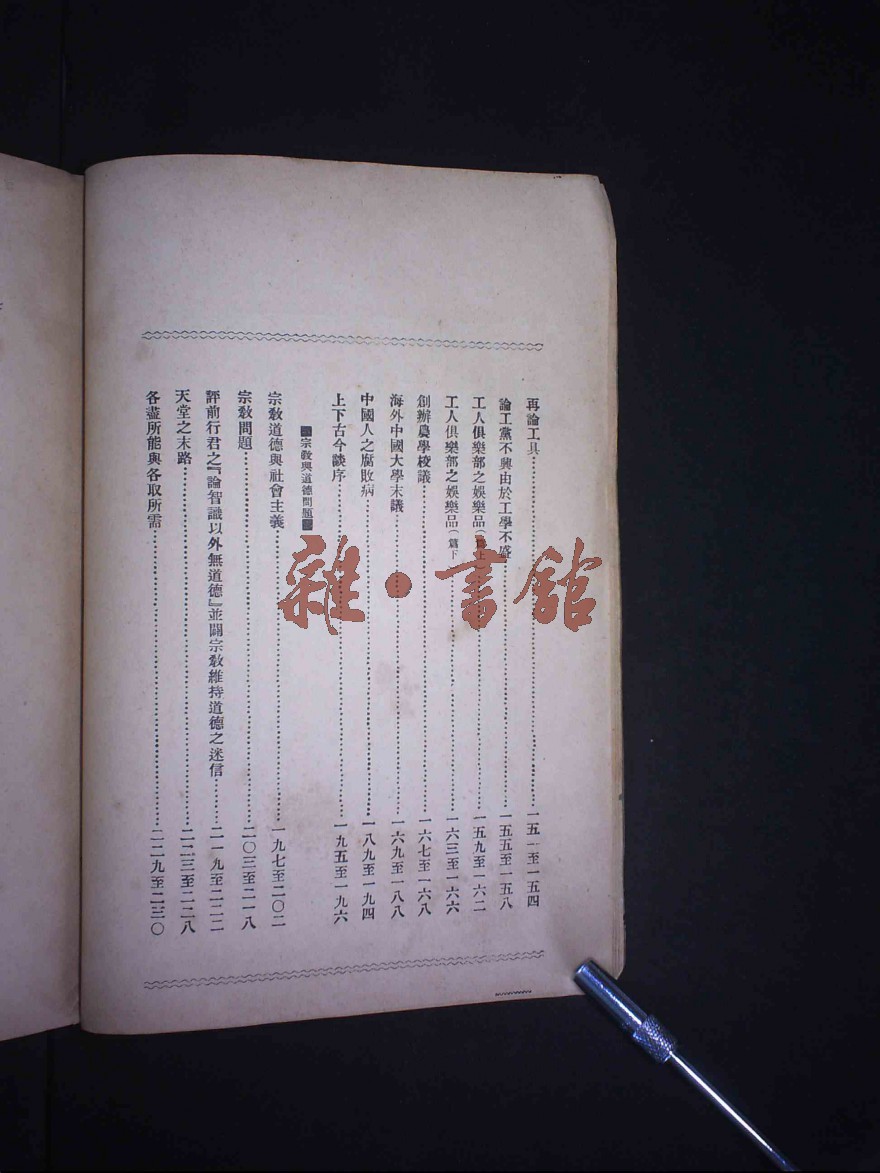 再論工具⋯⋯一五一至一五四
論工黨不興由於工學不盛⋯⋯一五五至一五八
工人俱樂部之娛樂品(篇上)⋯⋯一五九至一六二
工人俱樂部之娛樂品(篇下)⋯⋯一六三至一六六
創辦農學校議⋯⋯一六七至一六八
海外中國大學末議⋯⋯一六九至一八八
中國人之腐敗病⋯⋯一八九至一九四
上下古今談序⋯⋯一九五至一九六
宗教與道德問題
宗教道德與社會主義⋯⋯一九七至二〇二
宗教問題⋯⋯二〇三至二一八
評前行君之『論智識以外無道德』並闢宗教維持道德之迷信⋯⋯二一九至二二二
天堂之末路⋯⋯二二三至二二八
各盡所能與各取所需⋯⋯二二九至二三〇
雜·書館